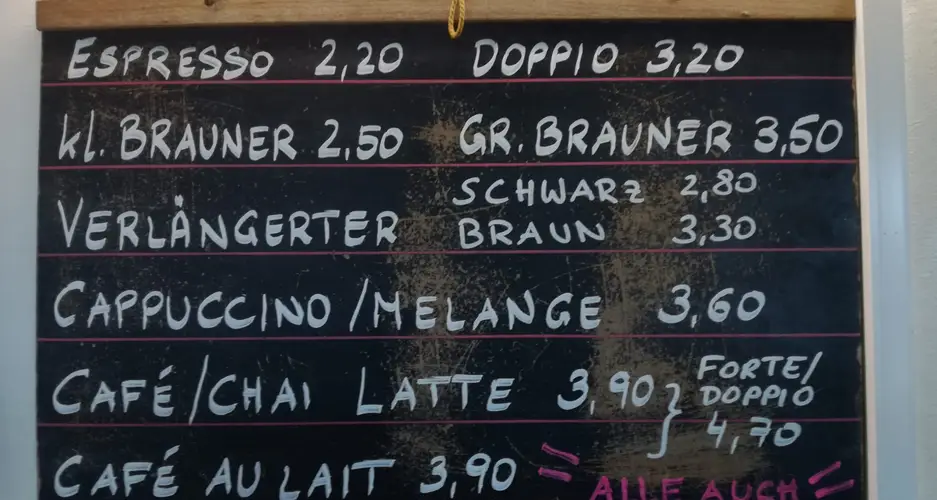 ESPRESSO 2,20 DOPPIO 3,20
kl. BRAUNER 2,50 GR. BRAUNER 3,50
SCHWARZ 2,80
VERLÄNGERTER BRAUN 3,30
CAPPUCCINO/MELANGE 3,60
CAFÉ/CHAI LATTE 3,90 } FORTE/
DOPPIO
4,70
CAFÉ AU LAIT 3,90
ALLE AUCH